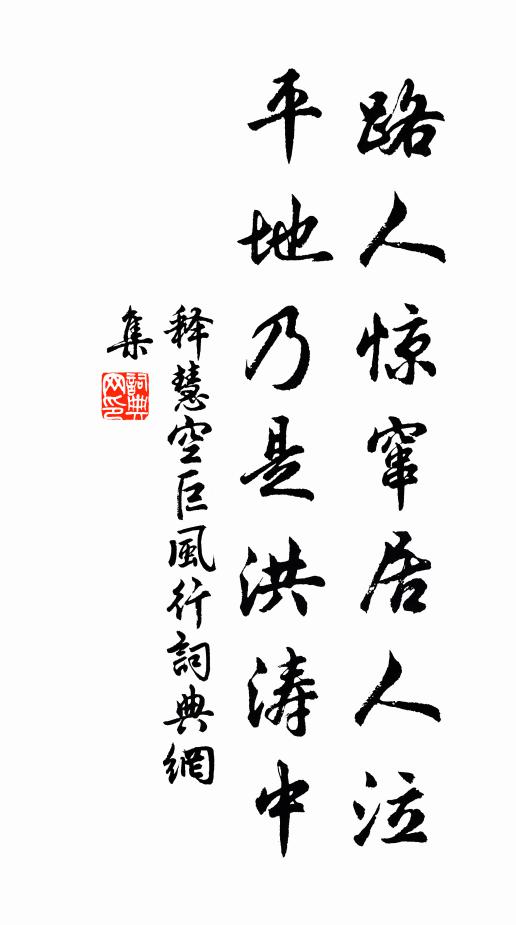 路人惊窜居人泣
平地乃是洪涛中
释慧空巨風行詞典網
集
詞典
网印